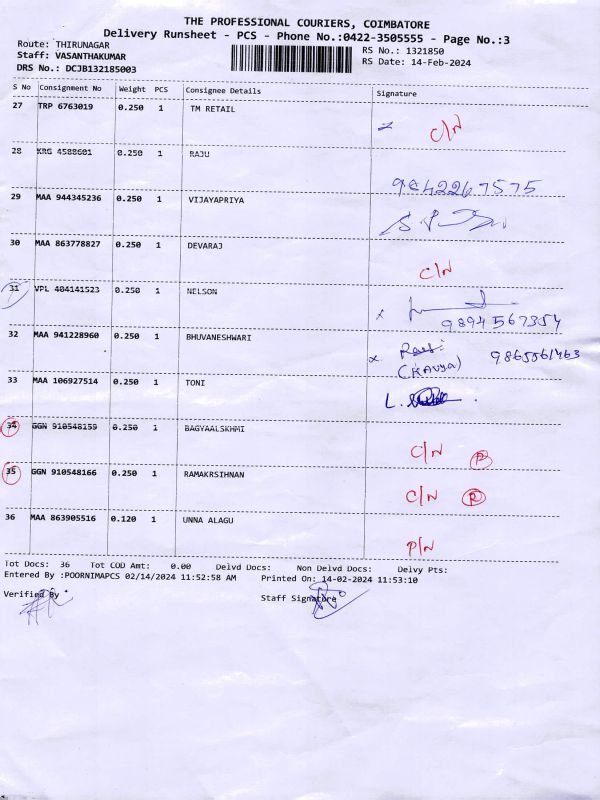 THE PROFESSIONAL COURIERS, COIMBATORE
Delivery Runsheet - PCS - Phone No.:0422-3505555 - Page No.:3
Route: THIRUNAGAR
Staff: VASANTHAKUMAR
DRS No.: DCJB132185003
RS No.: 1321850
RS Date: 14-Feb-2024
S No Consignment No Weight PCS Consignee Details Signature
27 TRP 6763019 0.250 1 TM RETAIL C/N
28 KRG 4588601 0.250 1 RAJU 9842267575
29 MAA 944345236 0.250 1 VIJAYAPRIYA
30 MAA 863778827 0.250 1 DEVARAJ C/N
31 VPL 404141523 0.250 1 NELSON
9894567354
32 MAA 941228960 0.250 1 BHUVANESHWARI
(KAVYA) 9865561463
33 MAA 106927514 0.250 1 TONI
34 GGN 910548159 0.250 1 BAGYAALSKHMI C/N R
35 GGN 910548166 0.250 1 RAMAKRSIHNAN C/N R
36 MAA 863905516 0.120 1 UNNA ALAGU P/N
Tot Docs: 36 Tot COD Amt: 0.00 Delvd Docs: Non Delvd Docs: Delvy Pts:
Entered By :POORNIMAPCS 02/14/2024 11:52:58 AM Printed On: 14-02-2024 11:53:10
Verified By Staff Signature